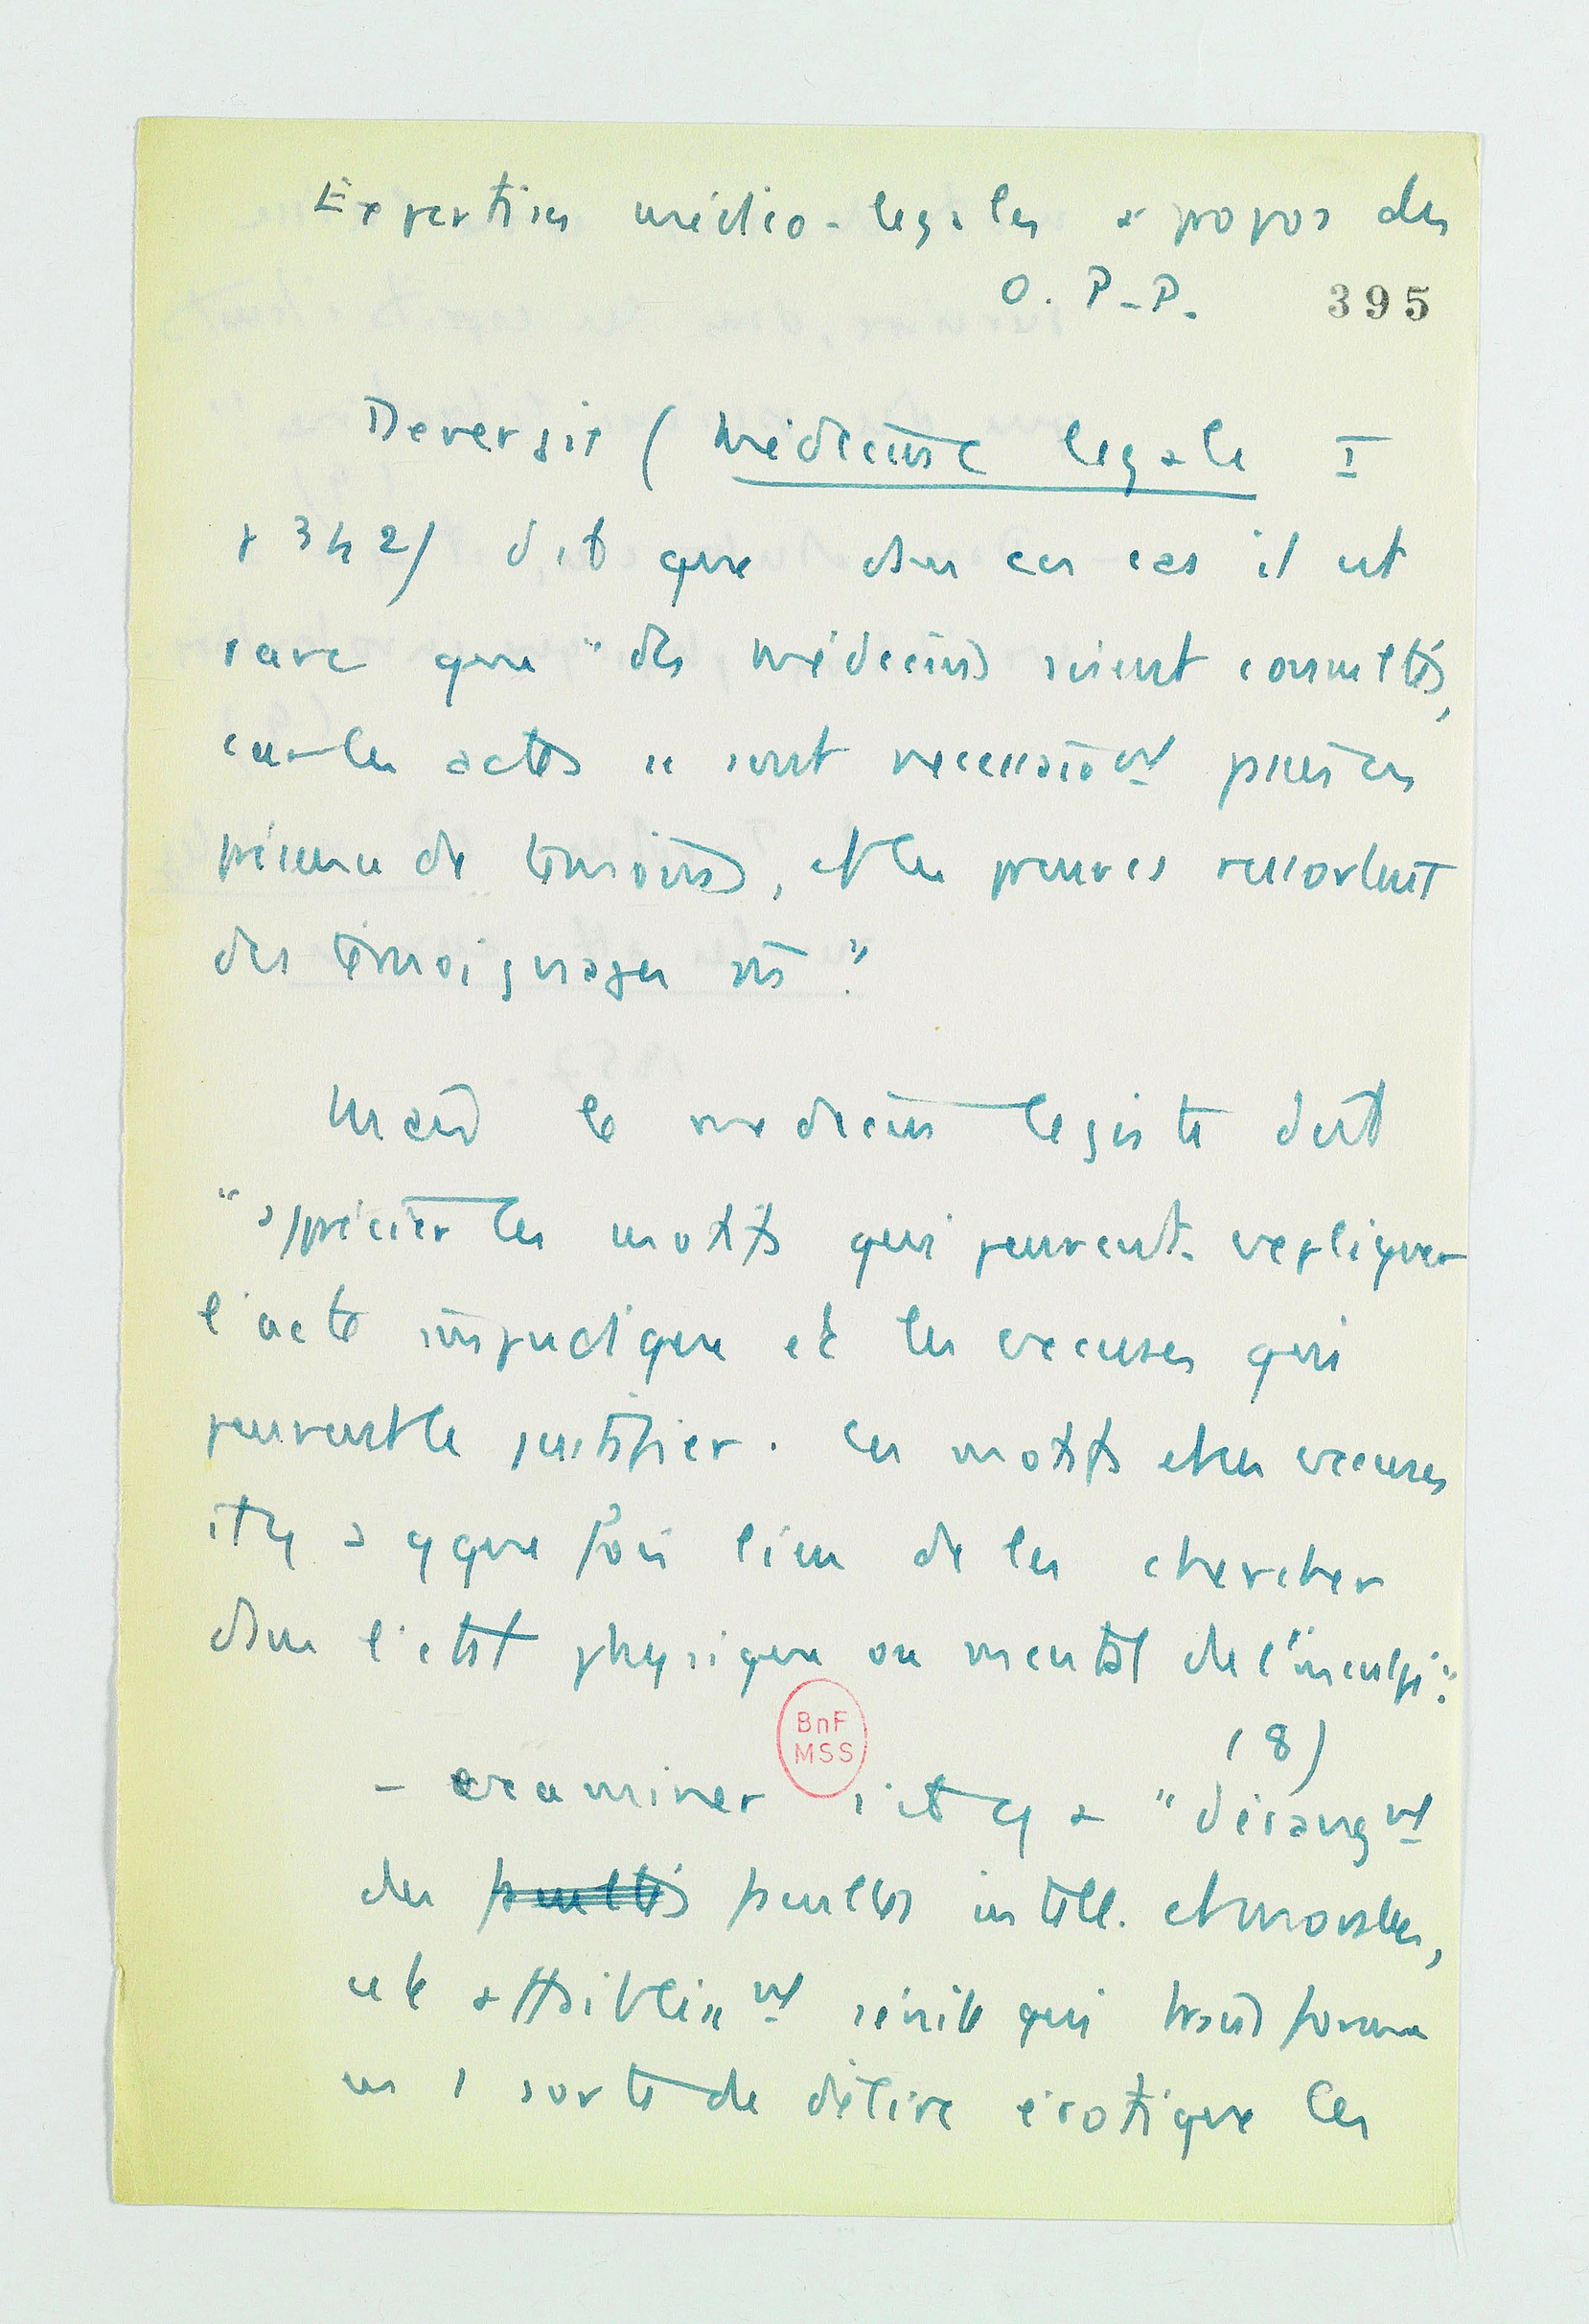 Expertises médico-légales à propos des
O. P-P. 395
Devergie (Médecine légale I
p 342) dit que dans ces cas il est
rare que "des médecins soient consultés,
car les actes st sont nécessairemt punis en
présence de témoins, et les preuves ressortent
des témoignages ms".
Mais le médecin légiste doit
"apprécier les motifs qui peuvent expliquer
l'acte impudique et les excuses qui
peuvent le justifier. Ces motifs et ces excuses
il y a qque fois lieu de les chercher
dans l'état physique ou mental de l'inculpé".
(8)
- examiner s'il y a "dérangmt
des facultés facultés intell. et morales,
et le affaiblissmt sénile qui transforme
en 1 sorte de délire érotique les
BnF
MSS